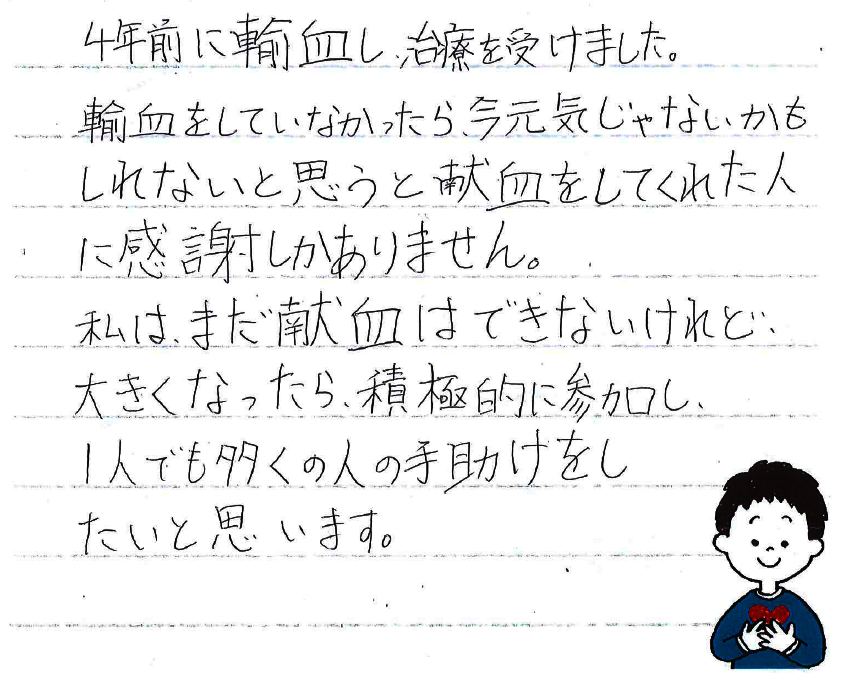 4年前に輸血し、治療を受けました。
輸血をしていなかったら、今元気じゃないかも
しれないと思うと献血をしてくれた人
に感謝しかありません。
私は、まだ献血はできないけれど、
大きくなったら、積極的に参加し、
1人でも多くの人の手助けをし
たいと思います。